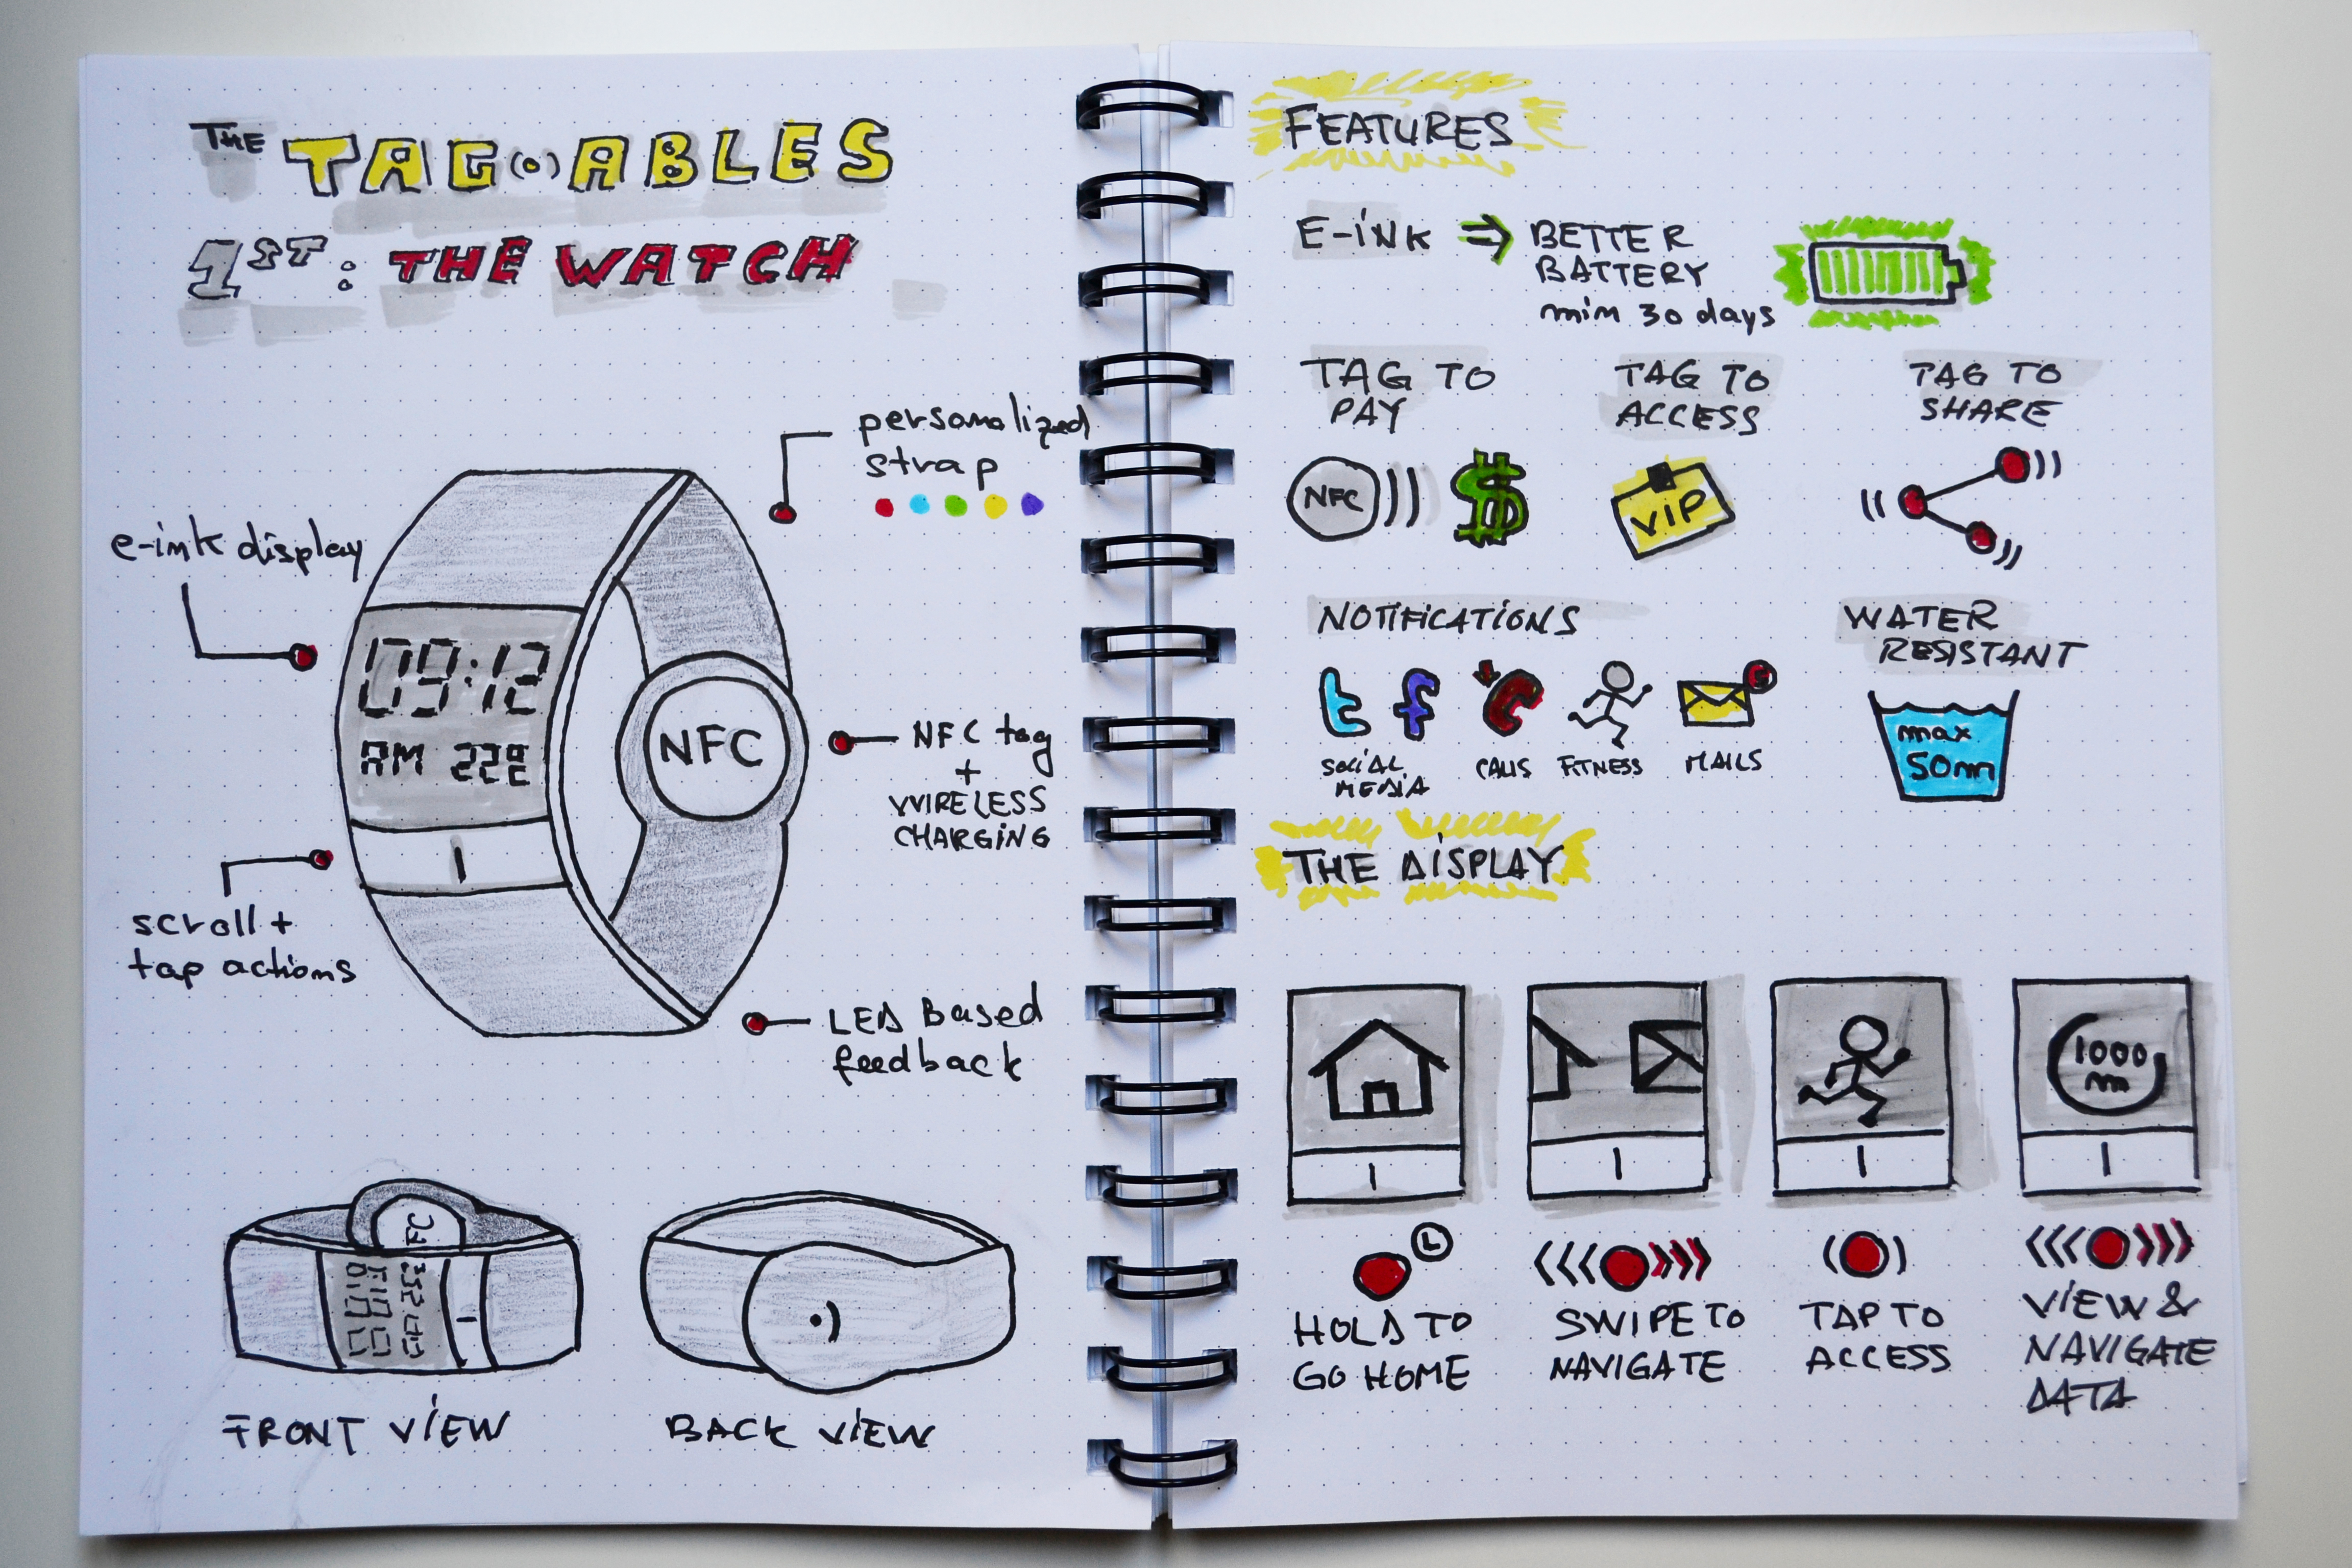 THE TAG(•)ABLES
1ST: THE WATCH
personalized
strap
e-ink display
09:12
AM 22E
NFC
NFC tag
+
WIRELESS
CHARGING
scroll +
tap actions
LED Based
feedback
FC
FRONT VIEW
BACK VIEW
FEATURES
E-iNK ⇒ BETTER
BATTERY
min 30 days
TAG TO
PAY
TAG TO
ACCESS
TAG TO
SHARE
NFC
$
VIP
NOTIFICATIONS
WATER
RESISTANT
t f
SOCIAL
MEDIA
CALLS
FITNESS
MAILS
max
50m
THE DISPLAY
1000
m
L
HOLD TO
GO HOME
SWIPE TO
NAVIGATE
TAP TO
ACCESS
VIEW &
NAVIGATE
DATA